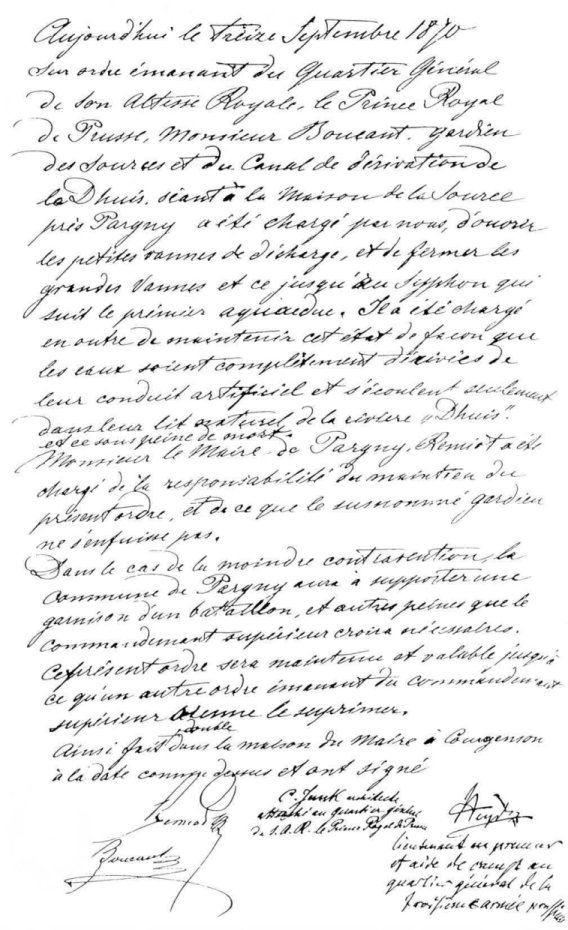 Aujourd'hui le treize Septembre 1870
Sur ordre émanant du Quartier Général
de Son Altesse Royale, le Prince Royal
de Prusse, Monsieur Boucant, gardien
des Sources et du Canal de dérivation de
la Dhuis, séant à la Maison de la Source
près Pargny a été chargé par nous, d'ouvrir
les petites vannes de décharge, et de fermer les
grandes Vannes et ce jusqu'au Syphon qui
suit le prémier aqueduc. Il a été chargé
en outre de maintenir cet état de façon que
les eaux soient complètement dérivées de
leur conduit artificiel et s'écoulent seulement
dans leur lit naturel de la rivière "Dhuis".
et ce sous peine de mort.
Monsieur le Maire de Pargny, Remiot a été
chargé de la responsabilité du maintien du
présent ordre, et de ce que le susnommé gardien
ne s'enfuisse pas.
Dans le cas de la moindre contravention, la
commune de Pargny aura à supporter une
garnison d'un bataillon, et autres peines que le
commandement supérieur croira nécessaires.
Ce présent ordre sera maintenu et valable jusqu'à
ce qu'un autre ordre émanant du commandement
supérieur vienne le suprimer.
double
Ainsi fait dans la maison du Maire à Courgenson
à la date comme dessus et ont signé
C. Junk architecte
attaché au quartier général
de S.A.R. le Prince Royal de Prusse
Boucant
lieutenant en premier
et aide de camp au
quartier général de la
troisième armée